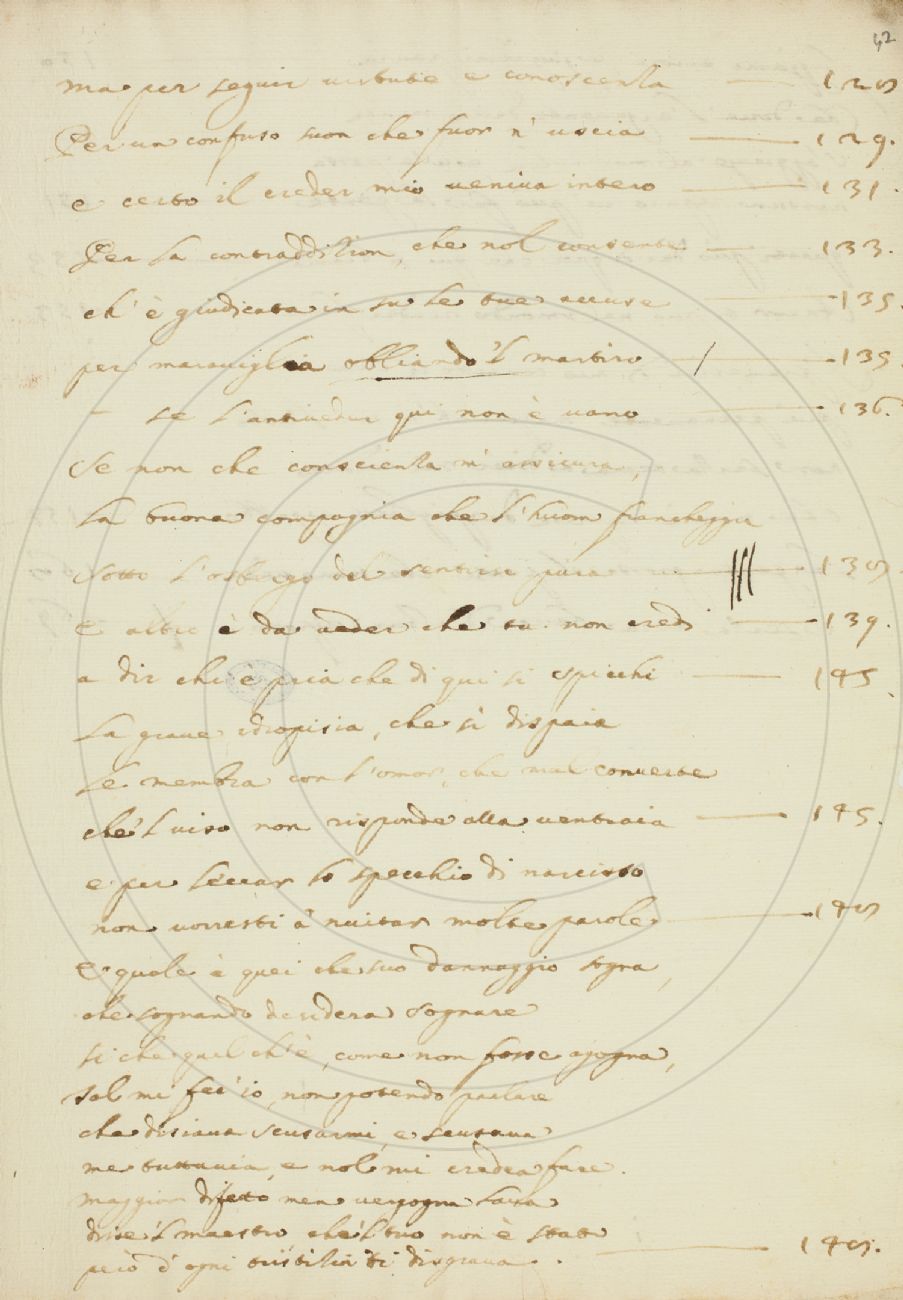 42
ma per seguir virtute e conoscenza
Per un confuso suon che fuor n' uscia 129.
e certo il creder mio veniva intero 131.
Per la contraddizion, che nol consente 133.
ch' è giudicata in su le tue accuse 135.
per maraviglia obbliando 'l martiro 135
se l'antiveder qui non è vano 136.
Se non che conscienza m' assicura,
La buona compagnia che l'huom francheggia
Sotto l'osbergo del sentirsi pura
E altro è da veder che tu non credi 139.
a dir chi è pria che di qui si spicchi 145
La grave idropisia, che sì dispaia
Le membra con l'omor, che mal converte
che 'l viso non risponde alla ventraia 145.
e per leccar lo specchio di narcisso
non vorresti à nvitar molte parole
E quale è quei che suo dannaggio sogna,
che sognando desidera sognare
si che quel ch' è, come non fosse agogna,
tal mi fec' io, non potendo parlare
che disiava scusarmi, e scusava
me tuttavia, e nol mi credea fare.
maggior difetto men vergogna lava
disse 'l maestro che 'l tuo non è stato
però d' ogni tristizia ti disgrava.